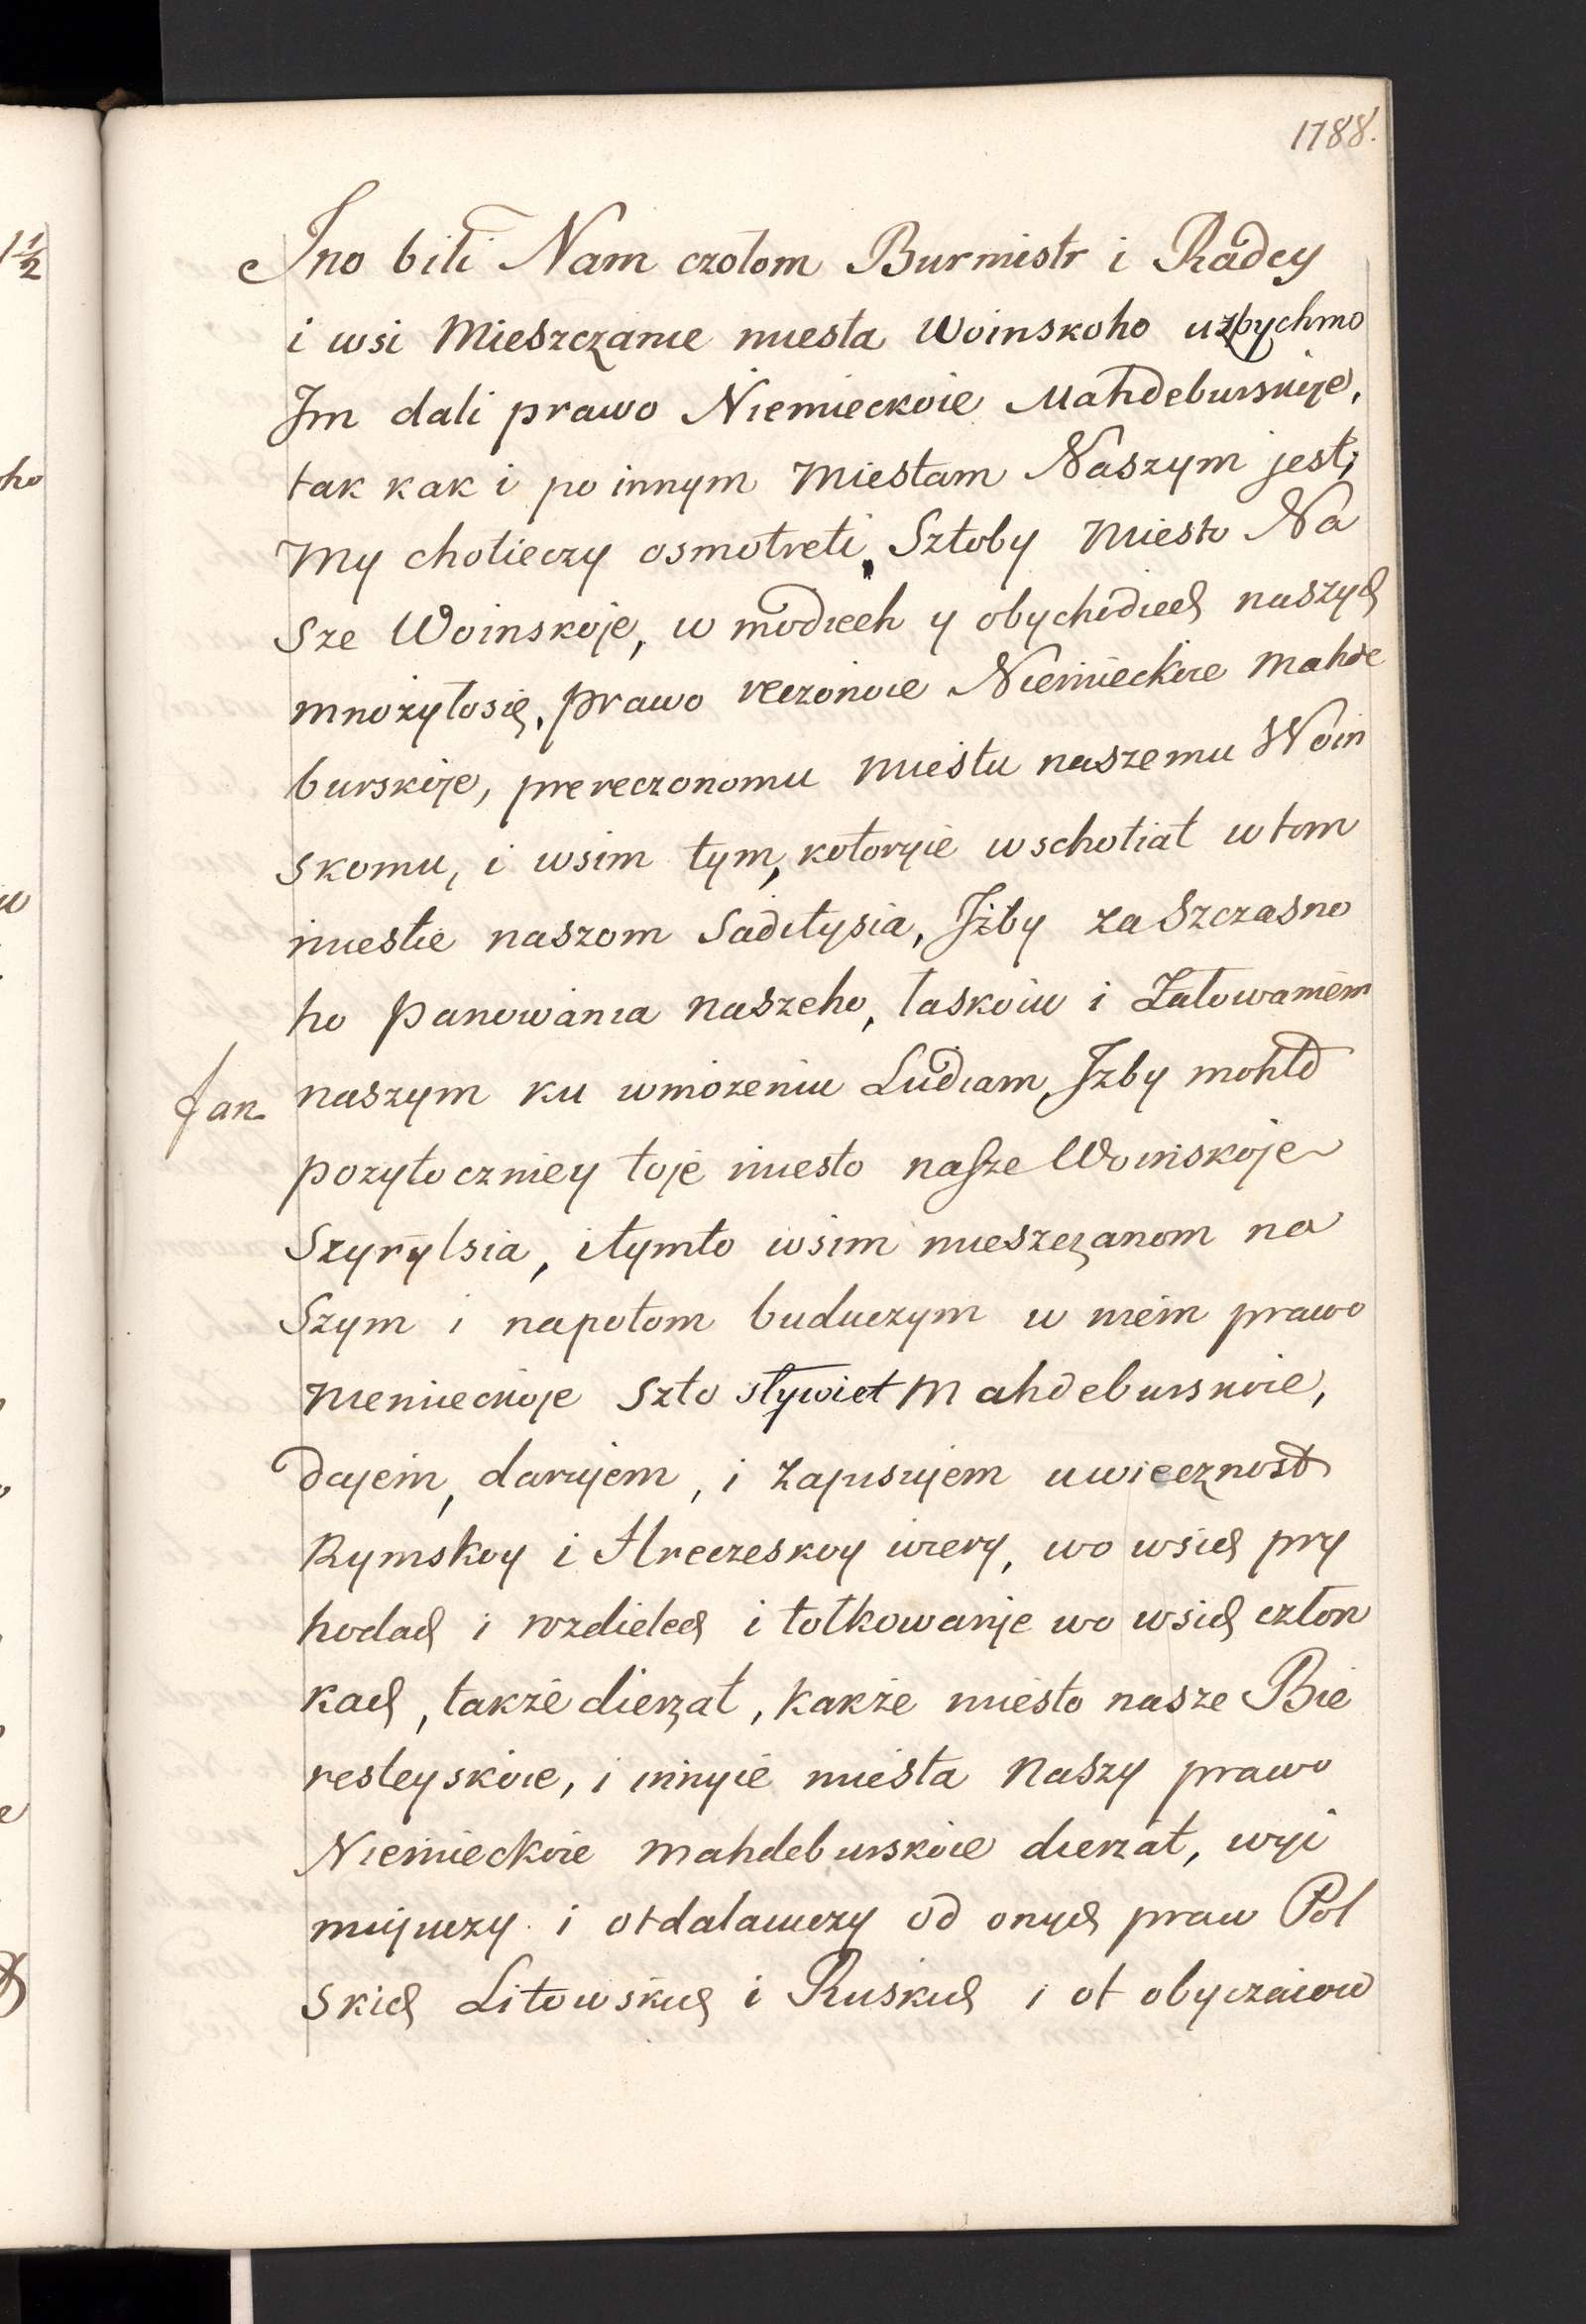 1788.
Jno bili Nam czołom Burmistr i Radcy
i wsi Mieszczanie miesta Woinskoho uzbychmo
Jm dali prawo Niemieckoie Mahdeburskoje,
tak kak i po innym Miestam Naszym jest;
My chotieczy osmotreti, Sztoby Miesto Na
sze Woinskoje, w modiech y obychodiech naszych
mnożyłosię, prawo reczonoie Niemieckoie Mahde
burskoje, prereczonomu Miestu naszemu Woin
skomu, i wsim tym, kotoryie wschotiat w tom
miestie naszom Saditysia, Jżby za Szczasno
ho Panowania Naszeho, łaskoiu i Załowaniem
naszym ku wmożeniu Ludiam, Jzby mohło
Jan.
pożytoczniey toje miesto nasze Woinskoje
Szyrylsia, i tymto wsim mieszczanom na
Szym i napotom buduczym w niem prawo
Niemieckoje Szto sływiet Mahdeburskoie,
dajem, darujem, i Zapisujem uwiecznost
Rymskoy i Hreczeskoy wiery, wo wsich pry
hodach i rozdielech i tołkowanje wo wsich człon
kach, także dierżat, kakże miesto nasze Bie
resteyskoie, i innyie miesta Naszy prawo
Niemieckoie Mahdeburskoie dierżat, wyi
mujuczy i otdalaiuczy od onych praw Pol
skich Litowskich i Ruskich i ot obyczaiow
1½
ho